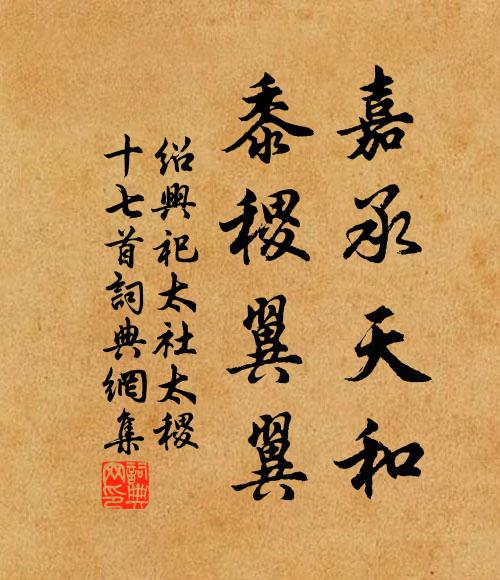 嘉承天和
黍稷翼翼
紹興祀太社太稷
十七首詞典網集